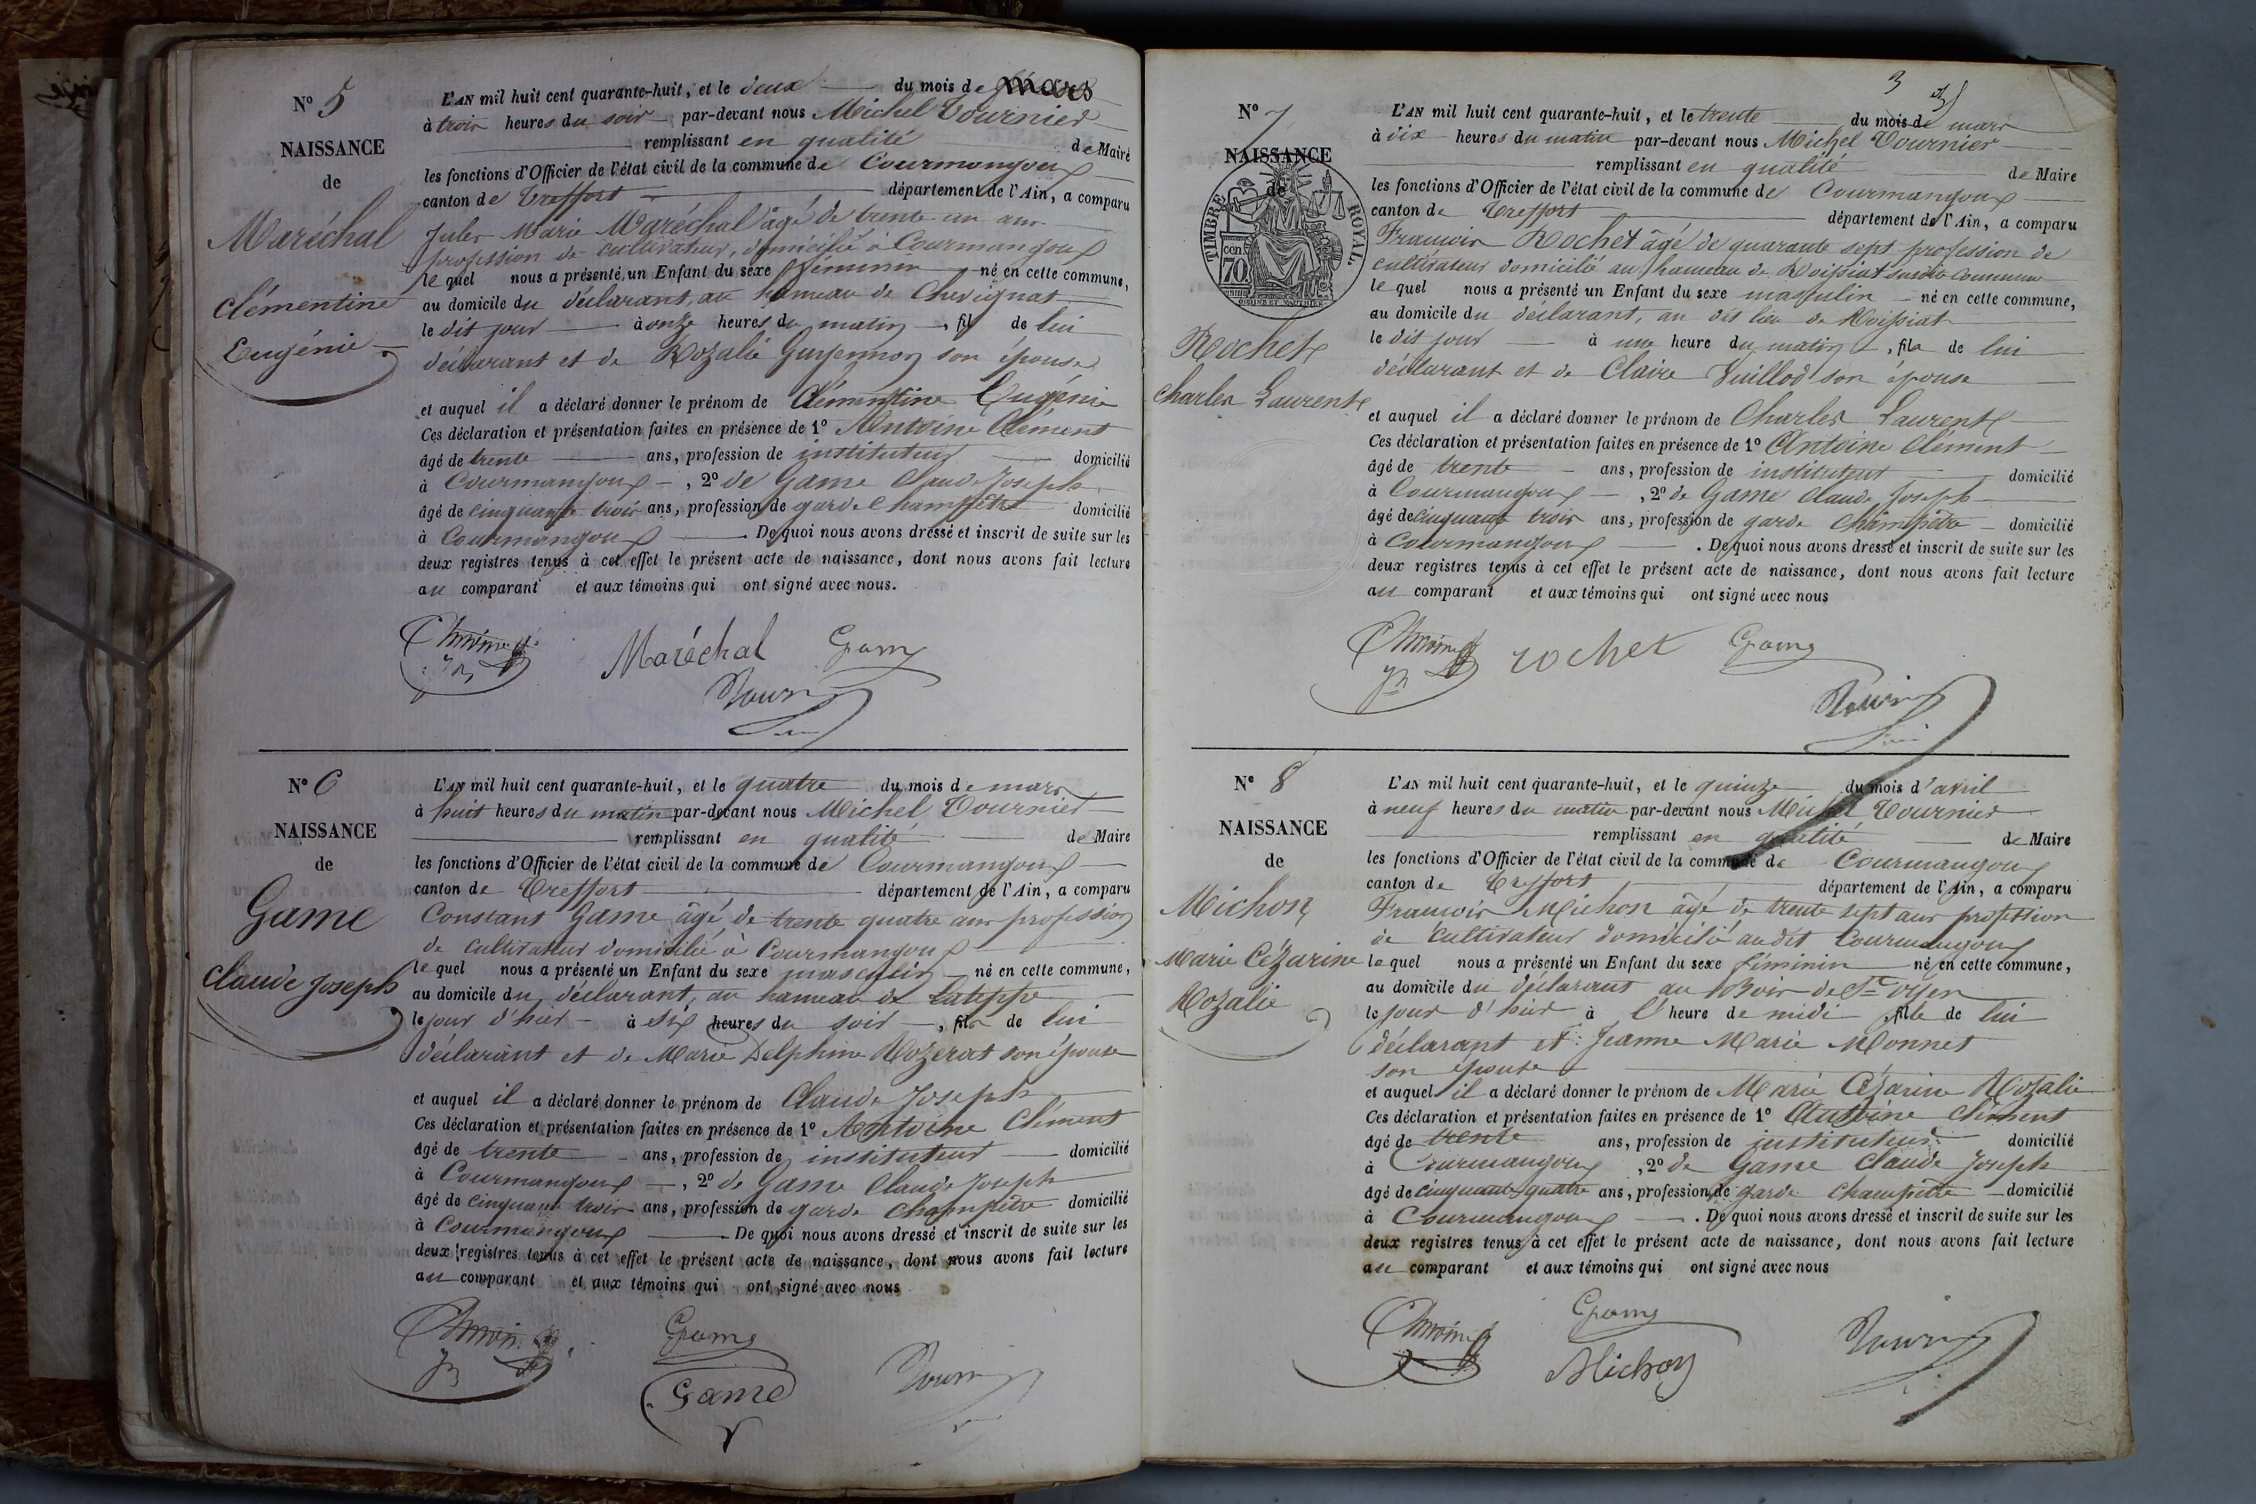 N° 5
NAISSANCE
de
Maréchal
Clémentine
Eugénie
L'AN mil huit cent quarante-huit, et le deux du mois de mars
à trois heures du soir par-devant nous Michel Tournier
remplissant en qualité de Maire
les fonctions d'Officier de l'état civil de la commune de Courmangoux
canton de Treffort département de l'Ain, a comparu
Jules Marie Maréchal âgé de trente un ans
profession de cultivateur, domicilié à Courmangoux
le quel nous a présenté un Enfant du sexe féminin né en cette commune,
au domicile du déclarant, au hameau de Chevignat
le dit jour à onze heures du matin, fil de lui
déclarant et de Rozalie Guyennon son épouse
et auquel il a déclaré donner le prénom de Clémentine Eugénie
Ces déclaration et présentation faites en présence de 1° Antoine Clément
âgé de trente ans, profession de instituteur domicilié
à Courmangoux, 2° de Game Claude Joseph
âgé de cinquante trois ans, profession de garde champêtre domicilié
à Courmangoux. De quoi nous avons dressé et inscrit de suite sur les
deux registres tenus à cet effet le présent acte de naissance, dont nous avons fait lecture
au comparant et aux témoins qui ont signé avec nous.
Maréchal Game
N° 6
NAISSANCE
de
Game
Claude Joseph
L'AN mil huit cent quarante-huit, et le quatre du mois de mars
à huit heures du matin par-devant nous Michel Tournier
remplissant en qualité de Maire
les fonctions d'Officier de l'état civil de la commune de Courmangoux
canton de Treffort département de l'Ain, a comparu
Constant Game âgé de trente quatre ans profession
de cultivateur domicilié à Courmangoux
le quel nous a présenté un Enfant du sexe masculin né en cette commune,
au domicile du déclarant, au hameau de Lateppe
le jour d'hier à six heures du soir, fils de lui
déclarant et de Marie Delphine Rozerat son épouse
et auquel il a déclaré donner le prénom de Claude Joseph
Ces déclaration et présentation faites en présence de 1° Antoine Clément
âgé de trente ans, profession de instituteur domicilié
à Courmangoux, 2° de Game Claude Joseph
âgé de cinquante trois ans, profession de garde champêtre domicilié
à Courmangoux De quoi nous avons dressé et inscrit de suite sur les
deux registres tenus à cet effet le présent acte de naissance, dont nous avons fait lecture
au comparant et aux témoins qui ont signé avec nous
Game
Game
3
N° 7
NAISSANCE
de
TIMBRE ROYAL.
cen 70
Rochet
Charles Laurent
L'AN mil huit cent quarante-huit, et le trente du mois de mars
à dix heures du matin par-devant nous Michel Tournier
remplissant en qualité de Maire
les fonctions d'Officier de l'état civil de la commune de Courmangoux
canton de Treffort département de l'Ain, a comparu
Francois Rochet âgé de quarante sept profession de
cultivateur domicilié au hameau de Roissiat susdite commune
le quel nous a présenté un Enfant du sexe masculin né en cette commune,
au domicile du déclarant, au dit lieu de Roissiat
le dit jour à une heure du matin, fils de lui
déclarant et de Claire Vuillod son épouse
et auquel il a déclaré donner le prénom de Charles Laurent
Ces déclaration et présentation faites en présence de 1° Antoine Clément
âgé de trente ans, profession de instituteur domicilié
à Courmangoux, 2° de Game Claude Joseph
âgé de cinquante trois ans, profession de garde champêtre domicilié
à Courmangoux. De quoi nous avons dressé et inscrit de suite sur les
deux registres tenus à cet effet le présent acte de naissance, dont nous avons fait lecture
au comparant et aux témoins qui ont signé avec nous
rochet Game
N° 8
NAISSANCE
de
Michon
Marie Cézarine
Rozalie
L'AN mil huit cent quarante-huit, et le quinze du mois d'avril
à neuf heures du matin par-devant nous Michel Tournier
remplissant en qualité de Maire
les fonctions d'Officier de l'état civil de la commune de Courmangoux
canton de Treffort département de l'Ain, a comparu
Francois Michon âgé de trente sept ans profession
de cultivateur domicilié audit Courmangoux
le quel nous a présenté un Enfant du sexe féminin né en cette commune,
au domicile du déclarant au Bois de
le jour d'hier à l'heure de midi, fille de lui
déclarant et Jeanne Marie Monnet
son épouse
et auquel il a déclaré donner le prénom de Marie Cézarine Rozalie
Ces déclaration et présentation faites en présence de 1° Antoine Clément
âgé de trente ans, profession de instituteur domicilié
à Courmangoux, 2° de Game Claude Joseph
âgé de cinquante-quatre ans, profession de garde champêtre domicilié
à Courmangoux. De quoi nous avons dressé et inscrit de suite sur les
deux registres tenus à cet effet le présent acte de naissance, dont nous avons fait lecture
au comparant et aux témoins qui ont signé avec nous
Game
Michon